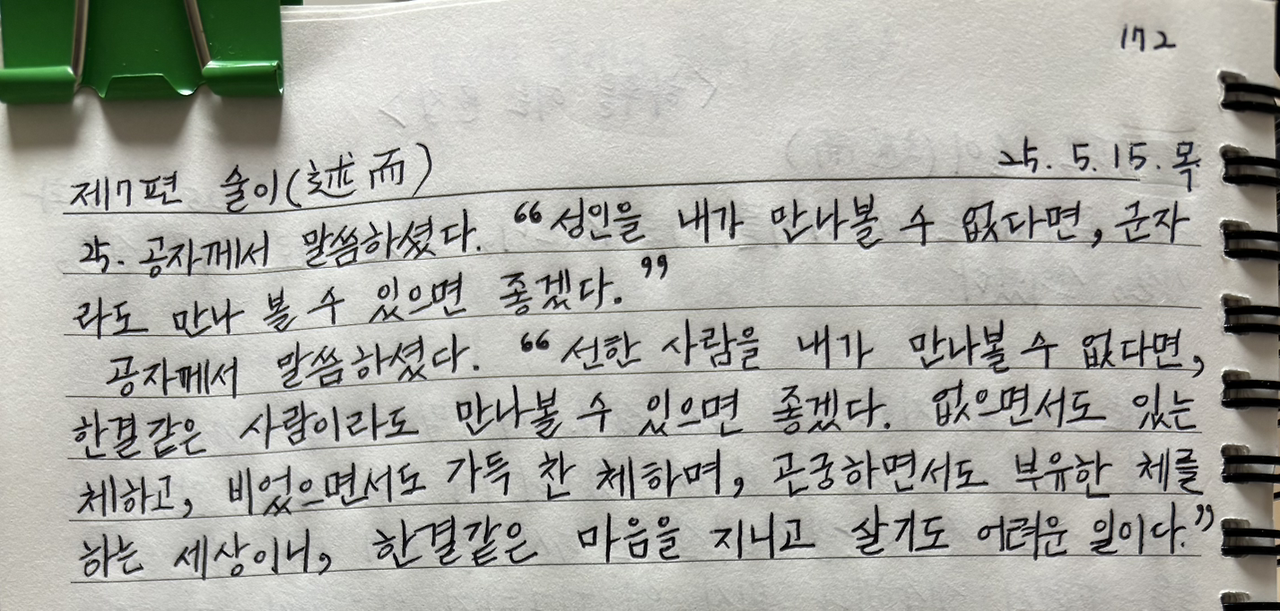 172
제7편 술이(述而) 25. 5. 15. 목
25. 공자께서 말씀하셨다. "성인을 내가 만나볼 수 없다면, 군자
라도 만나 볼 수 있으면 좋겠다."
공자께서 말씀하셨다. "선한 사람을 내가 만나볼 수 없다면,
한결같은 사람이라도 만나볼 수 있으면 좋겠다. 없으면서도 있는
체하고, 비었으면서도 가득 찬 체하며, 곤궁하면서도 부유한 체를
하는 세상이니, 한결같은 마음을 지니고 살기도 어려운 일이다."